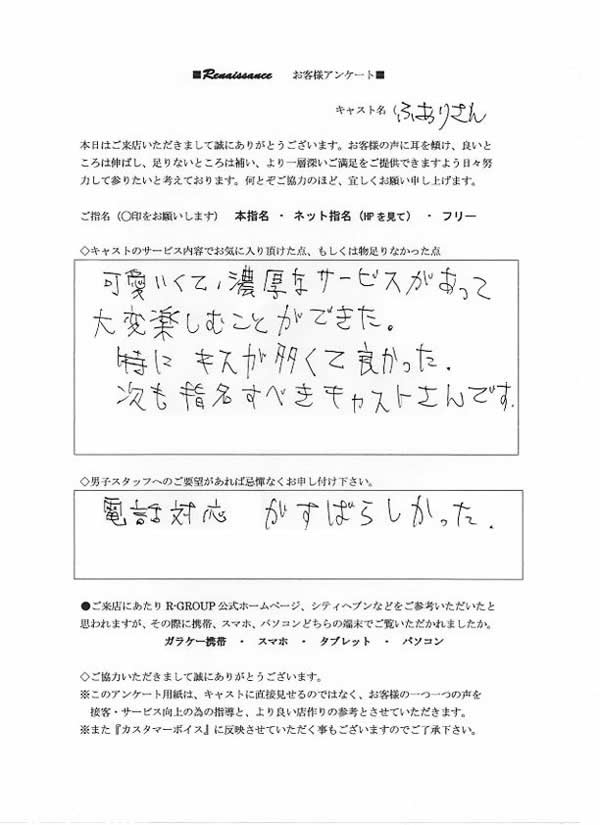 ■Renaissance お客様アンケート■
キャスト名 ふありさん
本日はご来店いただきまして誠にありがとうございます。お客様の声に耳を傾け、良いと
ころは伸ばし、足りないところは補い、より一層深いご満足をご提供できますよう日々努
力して参りたいと考えております。何とぞご協力のほど、宜しくお願い申し上げます。
ご指名（〇印をお願いします） 本指名 ・ ネット指名（HPを見て） ・ フリー
◇キャストのサービス内容でお気に入り頂けた点、もしくは物足りなかった点
可愛いくて、濃厚なサービスがあって
大変楽しむことができた。
特に キスが多くて良かった.
次も指名すべきキャストさんです.
◇男子スタッフへのご要望があれば忌憚なくお申し付け下さい。
電話対応 がすばらしかった.
●ご来店にあたり R-GROUP 公式ホームページ、シティヘブンなどをご参考いただいたと
思われますが、その際に携帯、スマホ、パソコンどちらの端末でご覧いただかれましたか。
ガラケー携帯 ・ スマホ ・ タブレット ・ パソコン
◇ご協力いただきまして誠にありがとうございます。
※このアンケート用紙は、キャストに直接見せるのではなく、お客様の一つ一つの声を
接客・サービス向上の為の指導と、より良い店作りの参考とさせていただきます。
※また『カスタマーボイス』に反映させていただく事もございますのでご了承下さい。